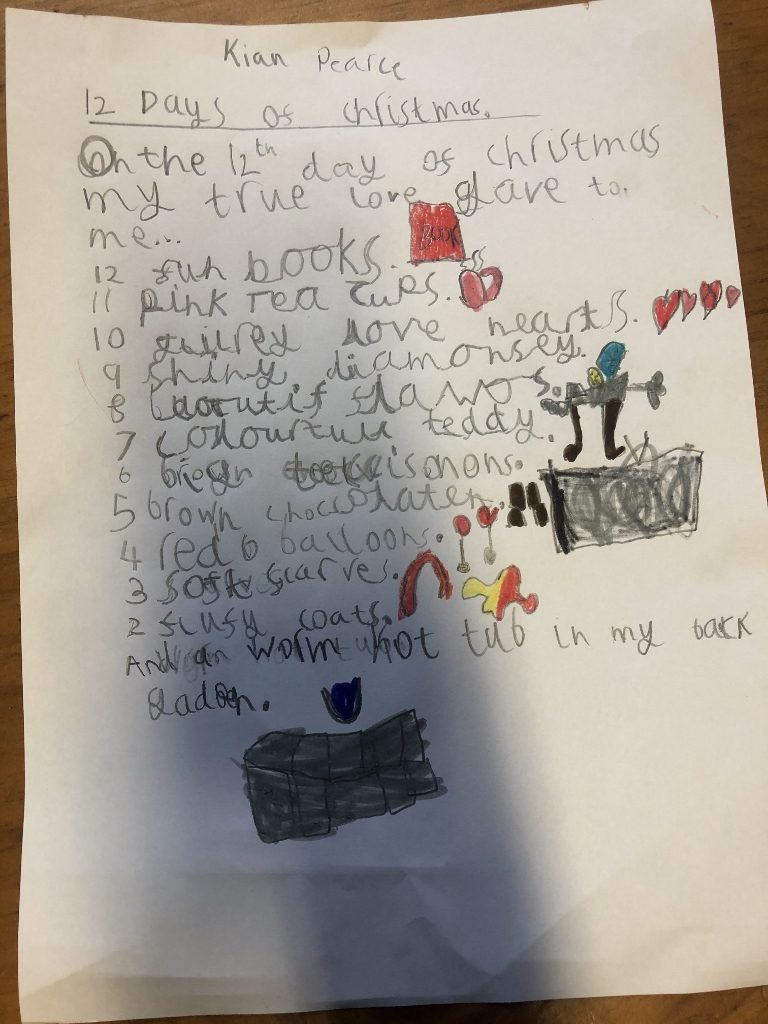 Kian Pearce
12 Days of christmas.
On the 12th day of christmas
my true love gave to
me...
BOOK
12 fun books.
11 pink Tea Cups.
10 love hearts.
9 shiny diamonsey.
8
7 colourfull teddy.
6
5 brown
4 red balloons.
3 soft scarves.
2 coats.
And an worm hot tub in my back